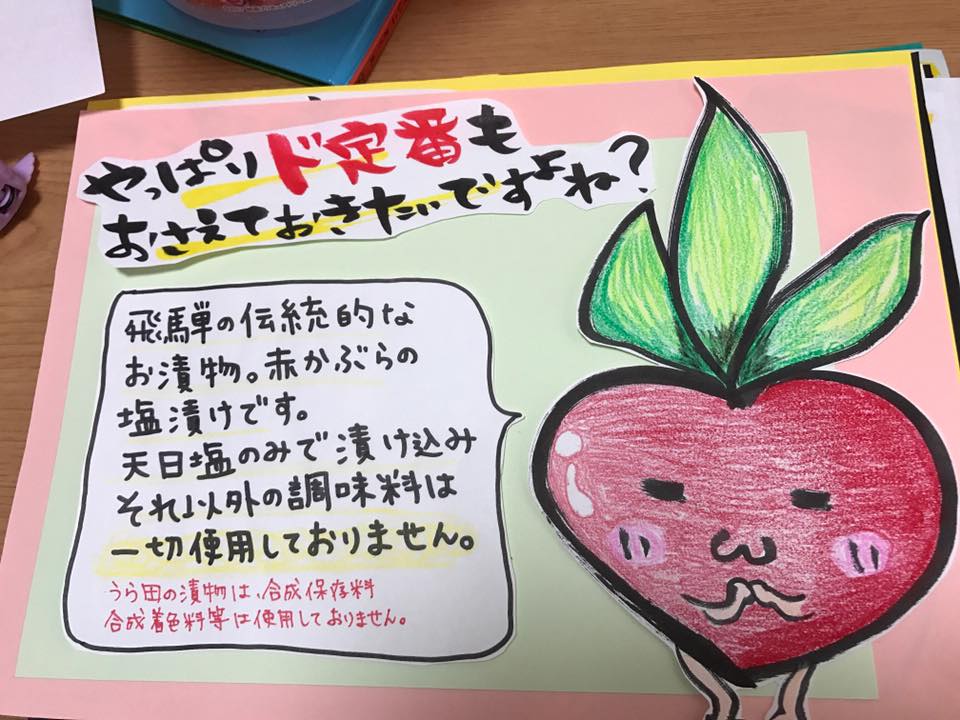 やっぱりド定番も
おさえておきたいですよね？
飛騨の伝統的な
お漬物。赤かぶらの
塩漬けです。
天日塩のみで漬け込み
それ以外の調味料は
一切使用しておりません。
うら田の漬物は、合成保存料
合成着色料等は使用しておりません。